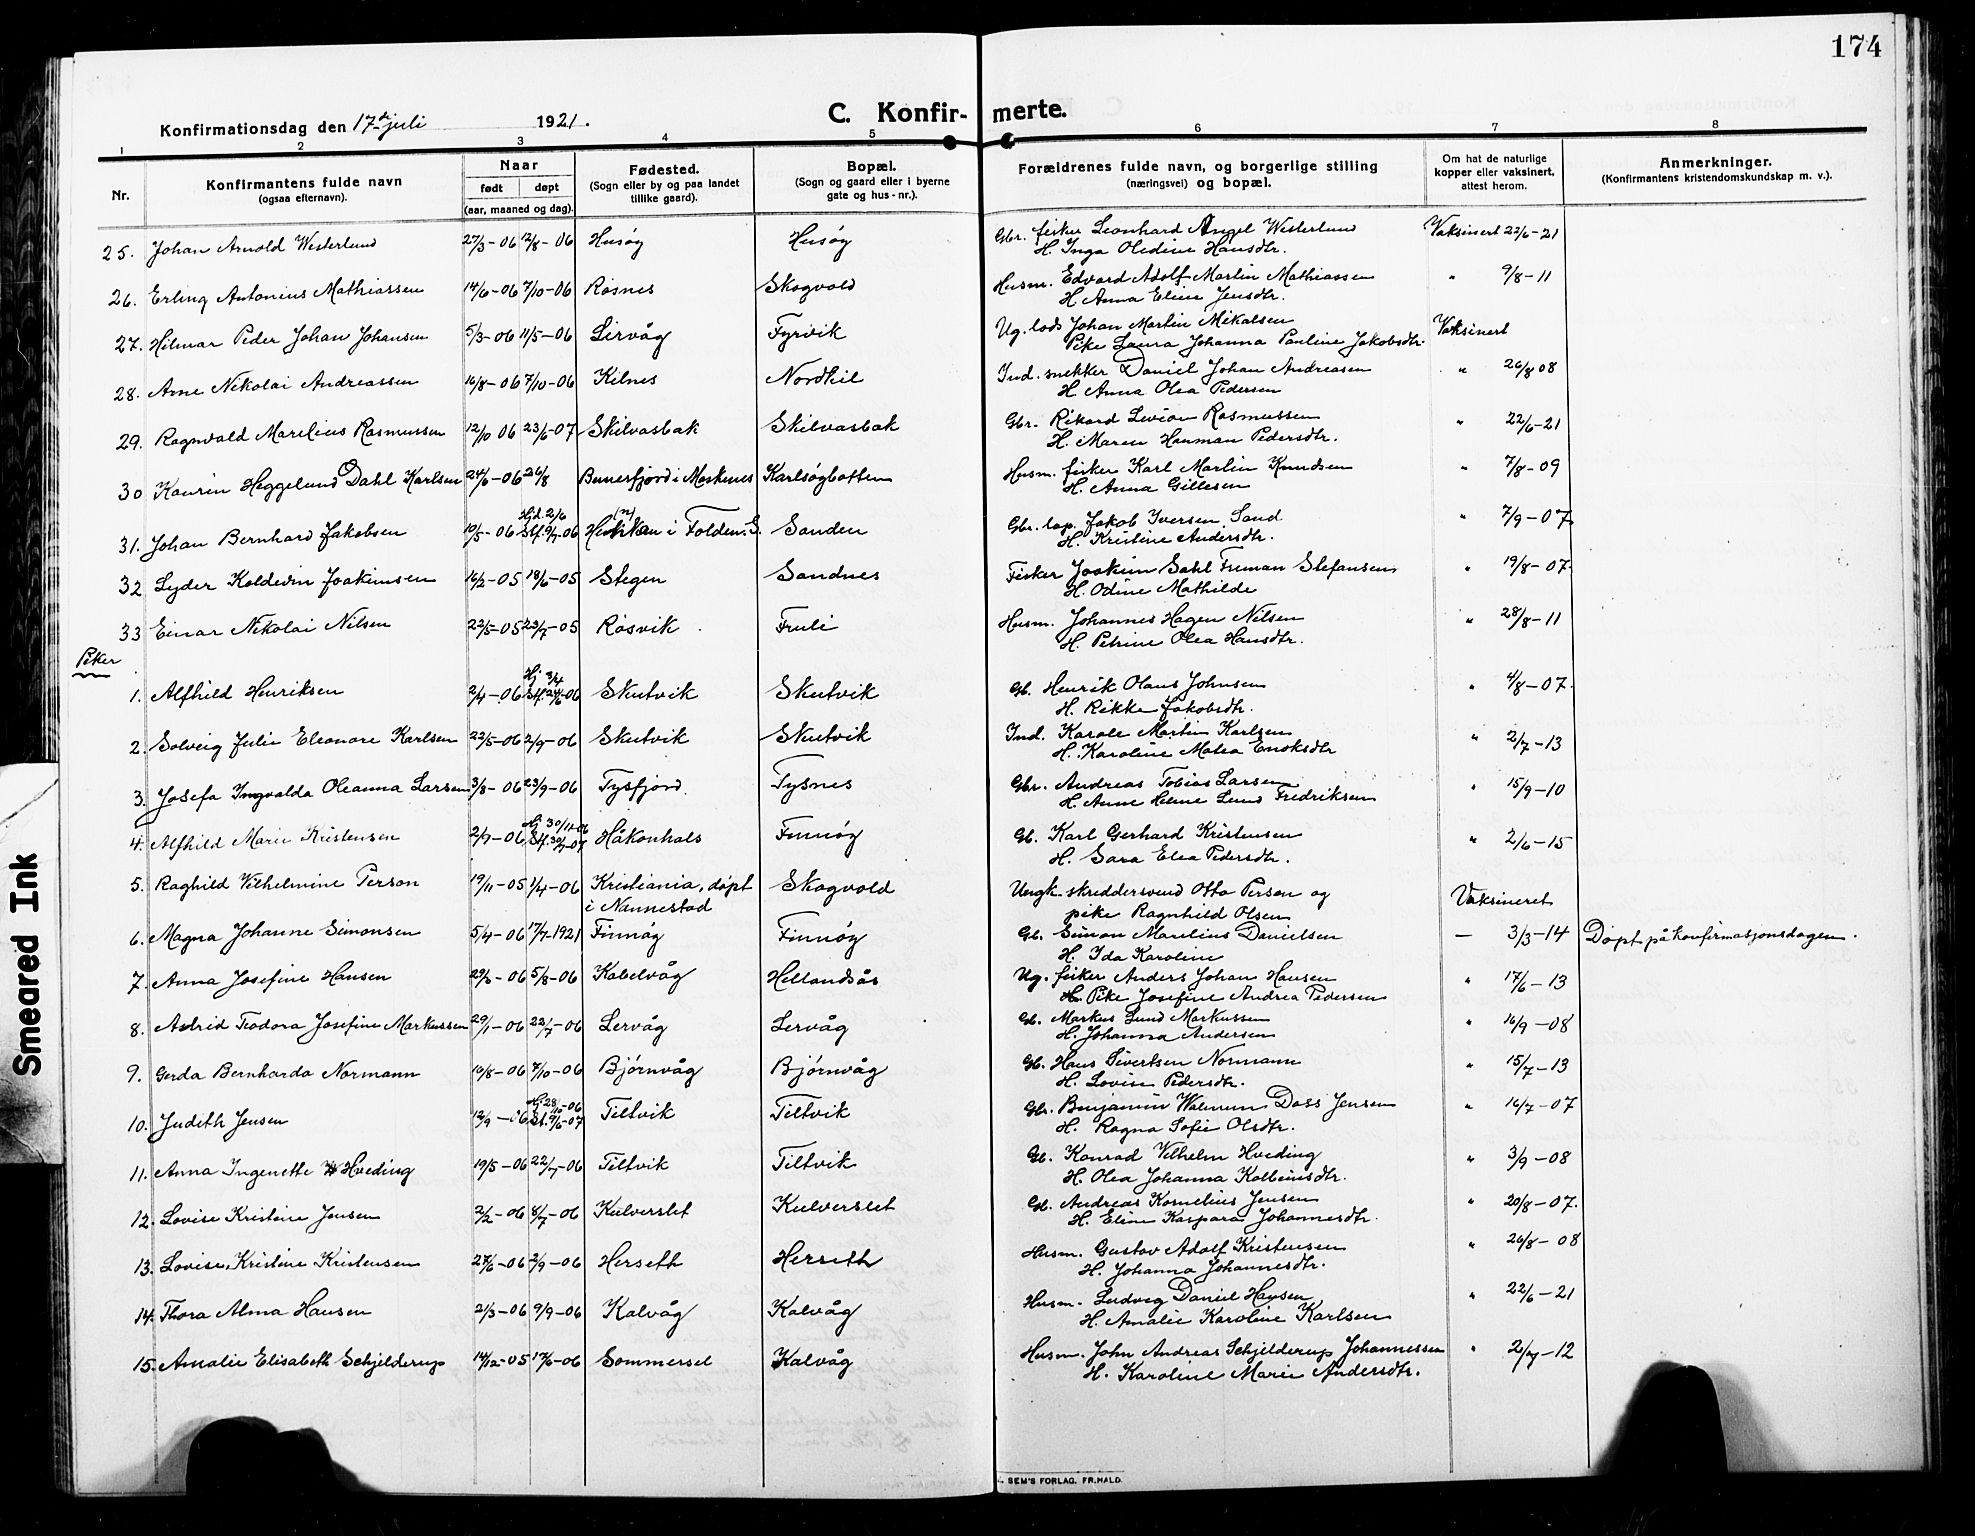 174
C. Konfirmerte.
Konfirmationsdag den 17de juli 1921.
1 2 3 4 5 6 7 8
Nr.
Konfirmantens fulde navn
(ogsaa efternavn).
Naar
født døpt
(aar, maaned og dag).
Fødested.
(Sogn eller by og paa landet
tillike gaard).
Bopæl.
(Sogn og gaard eller i byerne
gate og hus-nr.).
Forældrenes fulde navn, og borgerlige stilling
(næringsvei) og bopæl.
Om hat de naturlige
kopper eller vaksinert,
attest herom.
Anmerkninger.
(Konfirmantens kristendomskundskap m. v.).
25. Johan Arnold Westerlund 27/3-06 12/8-06 Husøy Husøy Gbr. fisker Leonhard Angel Westerlund Vaksinert 22/6-21
H. Inga Oledine Hansdtr.
26. Erling Antonius Mathiassen 14/6-06 7/10-06 Røsnes Skogvold Husm. Edvard Adolf Martin Mathiassen " 9/8-11
H. Anna Eline Jensdtr.
27. Hilmar Peder Johan Johansen 5/3-06 11/5-06 Lirvåg Fyrvik Ug. lods Johan Martin Mikalsen Vaksinert
Pike Laura Johanna Pauline Jakobsdtr.
28. Arne Nikolai Andreassen 16/8-06 7/10-06 Kilnes Nordkil Ind. snekker Daniel Johan Andreasen " 26/8 08
H. Anna Olea Pedersen
29. Ragnvald Marelius Rasmussen 12/10 06 23/6-07 Skilvasbak Skilvasbak Gbr. Rikard Rasmussen " 22/6-21
H. Maren Hanman Pedersdtr.
30 Kaurin Heggelund Dahl Karlsen 24/6-06 26/8 Bunesfjord i Moskenes Karlsøybotten Husm. fisker Karl Martin Knudsen " 7/8-09
H. Anna Gillesen
31. Johan Bernhard Jakobsen 10/5-06 Hj. d. 2/6 Stf. 9/7-06 i Folden. G. Sanden Gbr. lap. Jakob Iversen Sand " 7/9-07
H. Kristine Andersdtr.
32 Lyder Koldevin Joakimsen 16/2-05 18/6-05 Stegen Sandnes Fisker Joakim Dahl Fruman Stefansen " 19/8-07
H. Odine Mathilde
33 Einar Nikolai Nilsen 22/5-05 23/7-05 Røsvik Fruli Husm. Johannes Hagen Nilsen " 28/8-11
H. Petrine Olea Hansdtr.
Piker
1. Alfhild Henriksen 2/4-06 Hj. 3/4 Stf. 24/6-06 Skutvik Skutvik Gb. Henrik Olaus Johnsen " 4/8-07.
H. Rikke Jakobsdtr.
2. Solveig Julie Eleonore Karlsen 22/5-06 2/9-06 Skutvik Skutvik Ind. Karole Martin Karlsen " 2/7-13
H. Karoline Matea Enoksdtr
3. Josefa Ingvalda Oleanna Larsen 3/8-06 23/9-06 Tysfjord. Tysnes Gbr. Andreas Tobias Larsen " 15/9-10
H. Anne Helene Lund Fredriksen
4. Alfhild Marie Kristensen 2/9-06 Hj. 30/11-06 Stf. 30/6-07 Håkonhals Finnøy Gb. Karl Gerhard Kristensen " 2/6-15
H. Sara Elea Pedersdtr.
5. Raghild Vilhelmine Person 19/11-05 1/4-06 Kristiania, døpt Skogvold Ungk. skreddersvend Otto Person og Vaksineret
i Nannestad pike Ragnhild Olsen
6. Magna Johanne Simonsen 5/4-06 17/7-1921 Finnøy Finnøy Gb. Simon Marelius Danielsen — 3/3-14 Døpt på konfirmasjonsdagen.
H. Ida Karoline
7. Anna Josefine Hansen 29/5-06 5/8-06 Kabelvåg Hellandsås Ug. fisker Anders Johan Hansen " 17/6-13
H. Pike Josefine Andrea Pedersen
8. Astrid Teodora Josefine Markussen 29/1-06 22/7-06 Lervåg Lervåg Gb. Markus Lund Markussen " 16/9-08
H. Johanna Andersen
9. Gerda Bernharda Normann 10/8-06 7/10-06 Bjørnvåg Bjørnvåg Gb. Hans Sivertsen Normann " 15/7-13
H. Lovise Pedersdtr.
10. Judith Jensen 12/9-06 Hj. 28/10-06 St. 9/6-07 Tiltvik Tiltvik Gbr. Benjamin Dass Jensen " 16/7-07
H. Ragna Sofie Olsdtr.
11. Anna Ingenette Hveding 19/5-06 22/7-06 Tiltvik Tiltvik Gb. Konrad Vilhelm Hveding " 3/9-08
H. Olea Johanna Kolbeinsdtr.
12. Lovise Kristine Jensen 2/2-06 8/7-06 Kulverslet Kulverslet Gb. Andreas Kornelius Jensen " 20/8-07.
H. Eline Kaspara Johannesdtr.
13. Lovise Kristine Kristensen 27/6-06 2/9-06 Herseth Herseth Husm. Gustav Adolf Kristensen " 26/8-08
H. Johanna Johannesdtr.
14. Thora Alma Hansen 21/3-06 9/9-06 Kalvåg Kalvåg Husm. Ludvig Daniel Hansen " 22/6-21
H. Amalie Karoline Karlsen
15. Amalie Elisabeth Schjelderup 14/12-05 17/6-06 Sommersel Kalvåg Husm. John Andreas Schjelderup Johannessen " 2/7-12
H. Karoline Marie Andersdtr.
SEM'S FORLAG, FR.HALD.
Smeared Ink